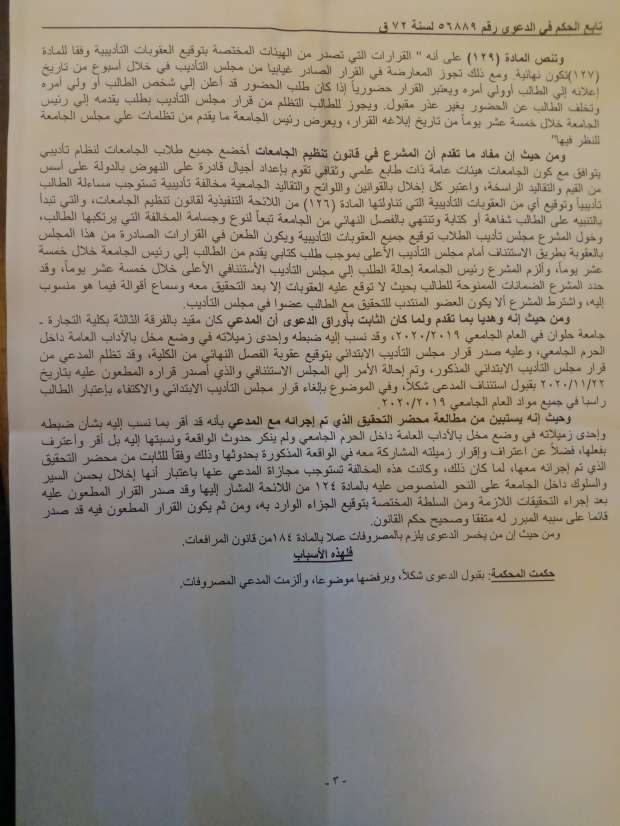 تابع الحكم في الدعوى رقم ٥٦٨٨٩ لسنة ٧٢ ق
وتنص المادة (١٢٩) على أنه " القرارات التي تصدر من الهيئات المختصة بتوقيع العقوبات التأديبية وفقا للمادة
(١٢٧)تكون نهائية ومع ذلك تجوز المعارضة في القرار الصادر غيابيا من مجلس التأديب في خلال أسبوع من تاريخ
إعلانه إلي الطالب أوولي أمره ويعتبر القرار حضورياً إذا كان طلب الحضور قد أعلن إلي شخص الطالب أو ولي أمره
وتخلف الطالب عن الحضور بغير عذر مقبول. ويجوز للطالب التظلم من قرار مجلس التأديب بطلب يقدمه إلي رئيس
الجامعة خلال خمسة عشر يوماً من تاريخ إبلاغه القرار، ويعرض رئيس الجامعة ما يقدم من تظلمات علي مجلس الجامعة
للنظر فيها"
ومن حيث إن مفاد ما تقدم أن المشرع في قانون تنظيم الجامعات أخضع جميع طلاب الجامعات لنظام تأديبي
يتوافق مع كون الجامعات هيئات عامة ذات طابع علمي وثقافي تقوم بإعداد أجيال قادرة على النهوض بالدولة على أسس
من القيم والتقاليد الراسخة، واعتبر كل إخلال بالقوانين واللوائح والتقاليد الجامعية مخالفة تأديبية تستوجب مساءلة الطالب
تأديبياً وتوقيع أي من العقوبات التأديبية التي تناولتها المادة (١٢٦) من اللائحة التنفيذية لقانون تنظيم الجامعات، والتي تبدأ
بالتنبيه على الطالب شفاهة أو كتابة وتنتهي بالفصل النهائي من الجامعة تبعاً لنوع وجسامة المخالفة التي يرتكبها الطالب،
وخول المشرع مجلس تأديب الطلاب توقيع جميع العقوبات التأديبية ويكون الطعن في القرارات الصادرة من هذا المجلس
بالعقوبة بطريق الاستئناف أمام مجلس التأديب الأعلى بموجب طلب كتابي يقدم من الطالب إلي رئيس الجامعة خلال خمسة
عشر يوماً، وألزم المشرع رئيس الجامعة إحالة الطلب إلي مجلس التأديب الأستئنافي الأعلى خلال خمسة عشر يوماً، وقد
حدد المشرع الضمانات الممنوحة للطالب بحيث لا توقع عليه العقوبات إلا بعد التحقيق معه وسماع أقوالة فيما هو منسوب
إليه، واشترط المشرع ألا يكون العضو المنتدب للتحقيق مع الطالب عضوا في مجلس التأديب.
ومن حيث إنه وهديا بما تقدم ولما كان الثابت بأوراق الدعوى أن المدعي كان مقيد بالفرقة الثالثة بكلية التجارة ـ
جامعة حلوان في العام الجامعي ٢٠٢٠/٢٠١٩، وقد نسب إليه ضبطه وإحدى زميلاته في وضع مخل بالآداب العامة داخل
الحرم الجامعي، وعليه صدر قرار مجلس التأديب الابتدائي بتوقيع عقوبة الفصل النهائي من الكلية، وقد تظلم المدعي من
قرار مجلس التأديب الابتدائي المذكور، وتم إحالة الأمر إلي المجلس الاستئنافي والذي أصدر قراره المطعون عليه بتاريخ
٢٠٢٠/١١/٢٢ بقبول استئناف المدعى شكلاً، وفي الموضوع بإلغاء قرار مجلس التأديب الابتدائي والاكتفاء بإعتبار الطالب
راسبا في جميع مواد العام الجامعي ٢٠٢٠/٢٠١٩
وحيث إنه يستبين من مطالعة محضر التحقيق الذي تم إجرائه مع المدعي بأنه قد أقر بما نسب إليه بشأن ضبطه
وإحدى زميلاته في وضع مخل بالآداب العامة داخل الحرم الجامعي ولم ينكر حدوث الواقعة ونسبتها إليه بل أقر وأعترف
بفعلها، فضلاً عن اعتراف وإقرار زميلته المشاركة معه في الواقعة المذكورة بحدوثها وذلك وفقاً للثابت من محضر التحقيق
الذي تم إجرانه معها، لما كان ذلك، وكانت هذه المخالفة تستوجب مجازاة المدعي عنها باعتبار أنها إخلال بحسن السير
والسلوك داخل الجامعة على النحو المنصوص عليه بالمادة ١٢٤ من اللائحة المشار إليها وقد صدر القرار المطعون عليه
بعد إجراء التحقيقات اللازمة ومن السلطة المختصة بتوقيع الجزاء الوارد به، ومن ثم يكون القرار المطعون فيه قد صدر
قائما على سببه المبرر له متفقا وصحيح حكم القانون.
ومن حيث إن من يخسر الدعوى يلزم بالمصروفات عملا بالمادة ١٨٤من قانون المرافعات.
فلهذه الأسباب
حكمت المحكمة: بقبول الدعوى شكلاً، وبرفضها موضوعا، وألزمت المدعي المصروفات.
- ٣ -